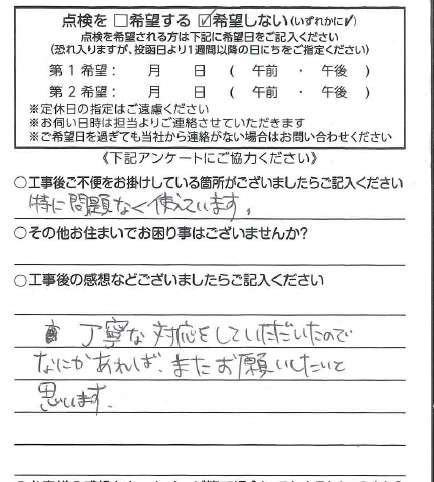 点検を □希望する ☑希望しない(いずれかに✓)
点検を希望される方は下記に希望日をご記入ください
(恐れ入りますが、投函日より1週間以降の日にちをご指定ください)
第1希望： 月 日 ( 午前 ・ 午後 )
第2希望： 月 日 ( 午前 ・ 午後 )
※定休日の指定はご遠慮ください
※お伺い日時は担当よりご連絡させていただきます
※ご希望日を過ぎても当社から連絡がない場合はお問い合わせください
《下記アンケートにご協力ください》
○工事後ご不便をお掛けしている箇所がございましたらご記入ください
特に問題なく使えています。
○その他お住まいでお困り事はございませんか?
○工事後の感想などございましたらご記入ください
丁寧な対応をしていただいたので
なにかあれば、またお願いしたいと
思います。